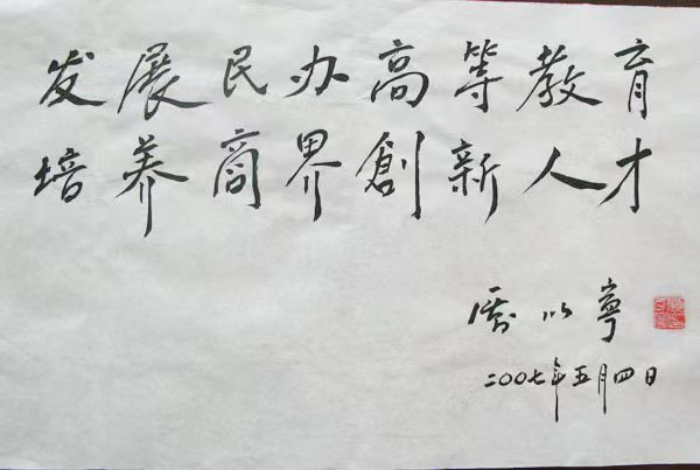 发展民办高等教育
培养商界創新人才
厉以寧
二〇〇七年五月四日